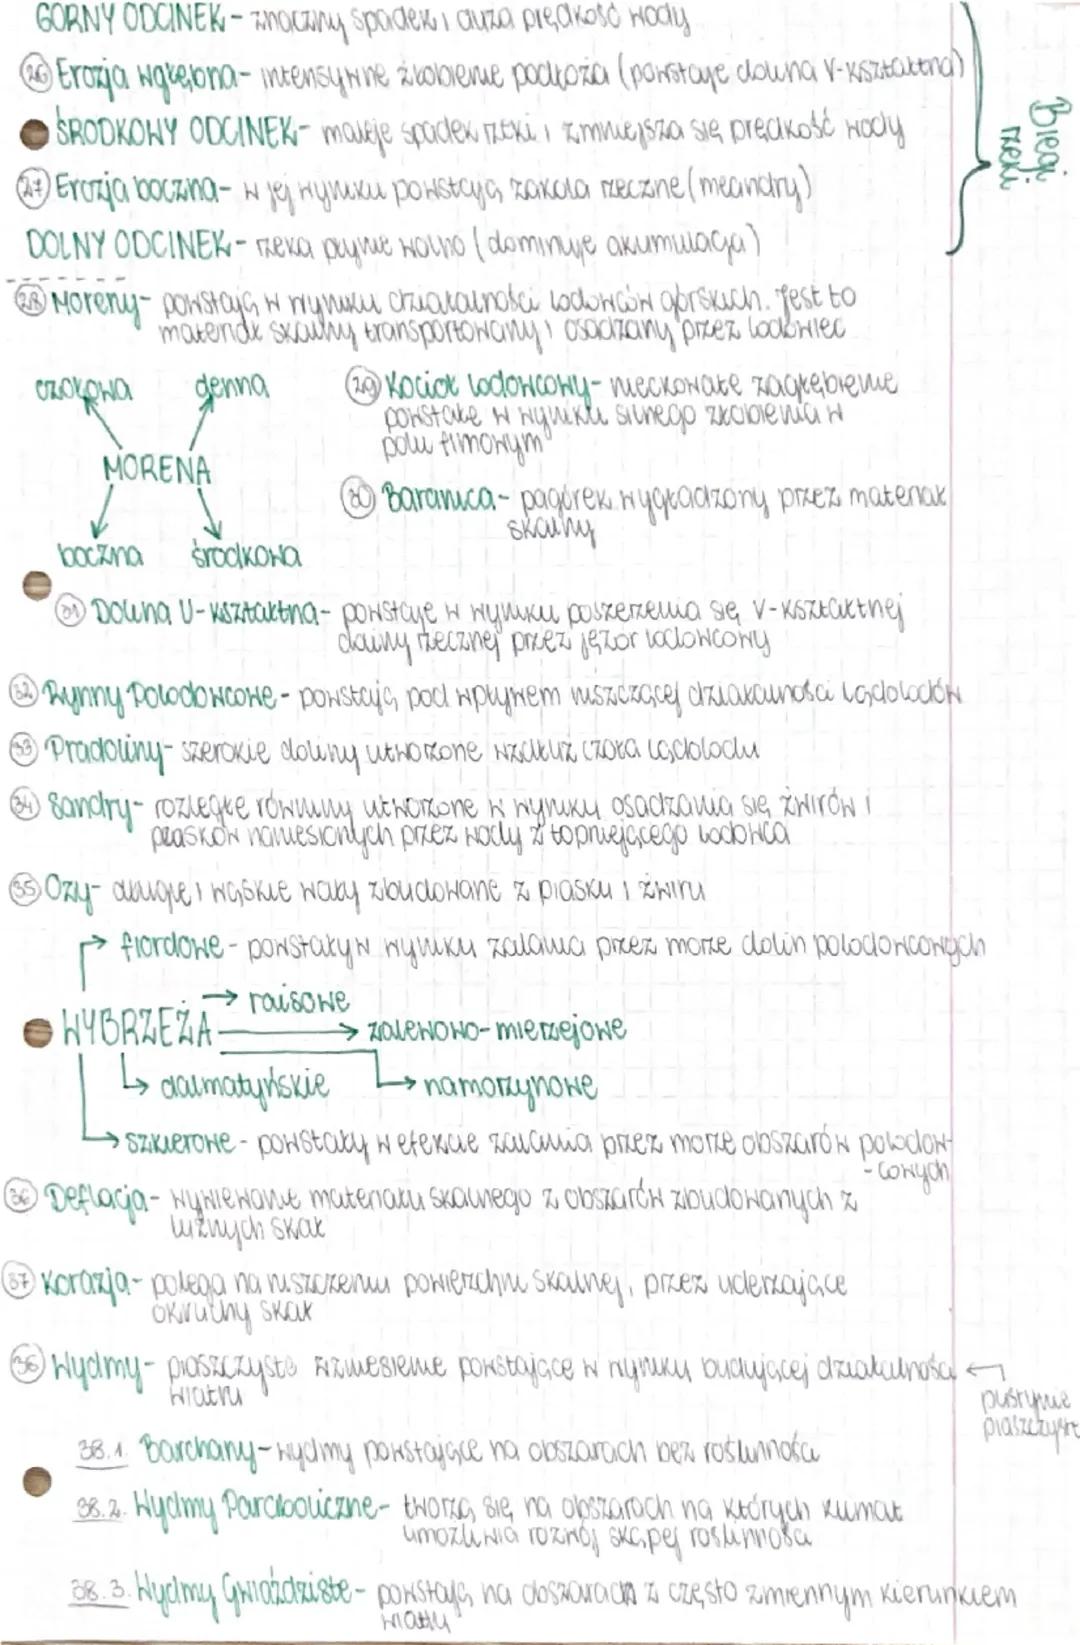 GÓRNY ODCINEK - znaczny spadek i duża prędkość wody
26 Erozja wgłębna - intensywne żłobienie podłoża (powstaje dolina V-kształtna)
ŚRODKOWY ODCINEK - maleje spadek rzeki i zmniejsza się prędkość wody
27 Erozja boczna - w jej wyniku powstają zakola rzeczne (meandry)
DOLNY ODCINEK - rzeka płynie wolno (dominuje akumulacja)
Biegi
rzeki
28 Moreny - powstają w wyniku działalności lodowców górskich. Jest to
materiał skalny transportowany i osadzany przez lodowiec
czołowa denna
MORENA
boczna środkowa
29 Kocioł lodowcowy - nieckowate zagłębienie
powstałe w wyniku silnego żłobienia w
polu firnowym
30 Baranica - pagórek wygładzony przez materiał
skalny
31 Dolina U-kształtna - powstaje w wyniku poszerzenia się V-kształtnej
doliny rzecznej przez jęzor lodowcowy
32 Rynny Polodowcowe - powstają pod wpływem niszczącej działalności lądolodów
33 Pradoliny - szerokie doliny utworzone wzdłuż czoła lądolodu
34 Sandry - rozległe równiny utworzone w wyniku osadzania się żwirów i
piasków naniesionych przez wody z topniejącego lodowca
35 Ozy - długie i wąskie wały zbudowane z piasku i żwiru
→ fiordowe - powstały w wyniku zalania przez morze dolin polodowcowych
→ raisowe
WYBRZEŻA → zalewowo-mierzejowe
→ dalmatyńskie → namorzynowe
→ szkierowe - powstały w efekcie zalania przez morze obszarów polodow-
-cowych
36 Deflacja - wywiewanie materiału skalnego z obszarów zbudowanych z
luźnych skał
37 Korazja - polega na niszczeniu powierzchni skalnej, przez uderzające
okruchy skał
38 Wydmy - piaszczyste wzniesienie powstające w wyniku budującej działalności ←
wiatru
pustynie
piaszczyste
38.1. Barchany - wydmy powstające na obszarach bez roślinności
38.2. Wydmy Paraboliczne - tworzą się na obszarach na których klimat
umożliwia rozwój skąpej roślinności
38.3. Wydmy Gwiaździste - powstają na obszarach z często zmiennym kierunkiem
wiatru